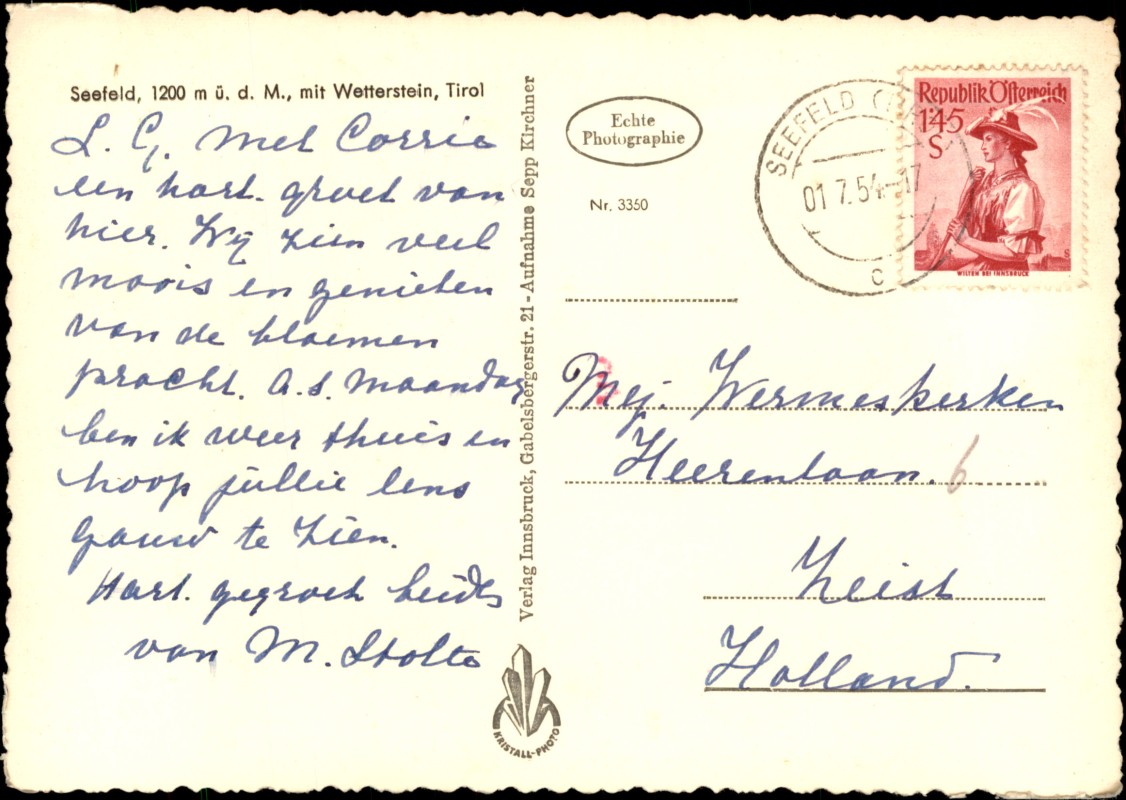 Seefeld, 1200 m ü. d. M., mit Wetterstein, Tirol
L. G. met Corrie
een hart. groet van
hier. Wij zien veel
moois en genieten
van de bloemen
pracht. a.s. maandag
ben ik weer thuis en
hoop jullie eens
gauw te zien.
Hart. gegroet beide
van M. Stolte
Verlag Innsbruck, Gabelsbergerstr. 21 - Aufnahme Sepp Kirchner
KRISTALL-PHOTO
Echte
Photographie
Nr. 3350
SEEFELD
01 7.54-17
C
Republik Österreich
1·45
S
WILTEN BEI INNSBRUCK
Mej. Wermeskerken
Heerenlaan. 6
Zeist
Holland.